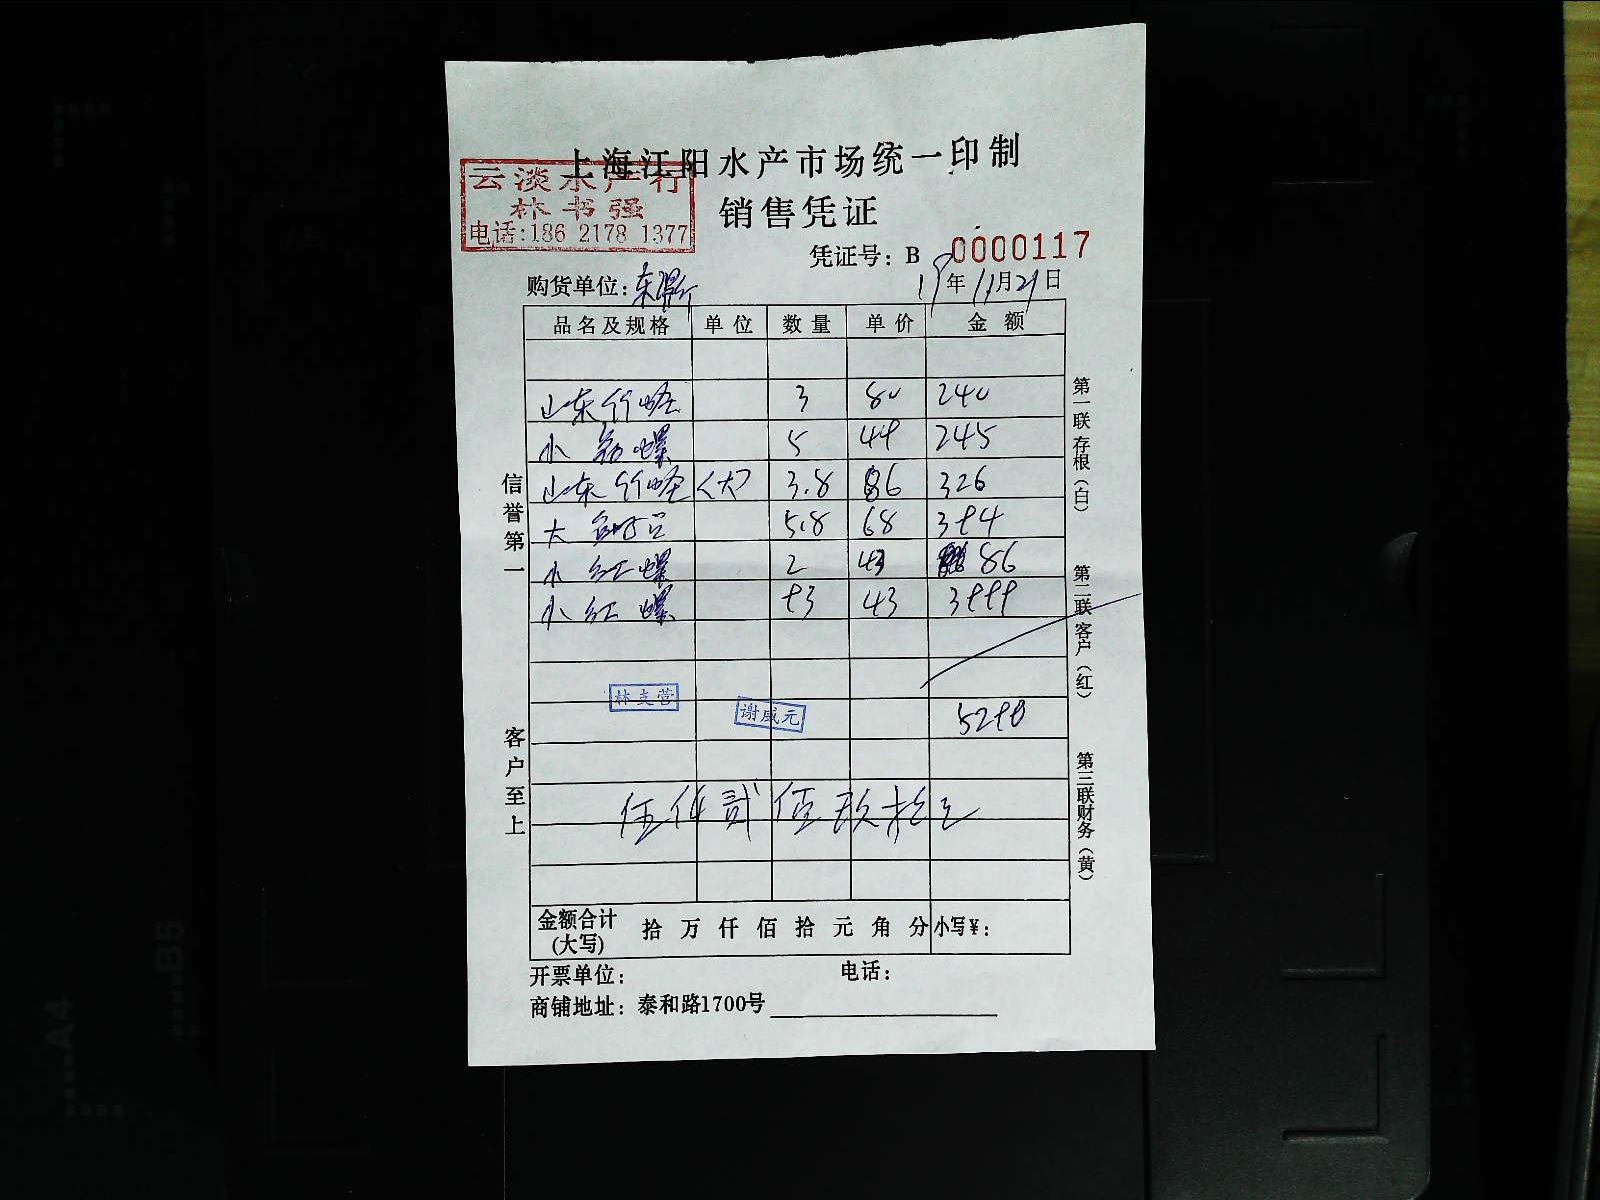 上海江阳水产市场统一印制
云淡水产行
林书强
电话:186 2178 1377
销售凭证
凭证号：B 0000117
购货单位：东
19年11月21日
品名及规格 单位 数量 单价 金额
山东竹蛏 3 80 240
小 螺 5 49 245
山东竹蛏 (大) 3.8 86 326
大 5.8 68 394
小红螺 2 43 86
小红螺 93 43 3999
林支营
谢威元 5290
伍仟贰佰玖拾元
金额合计(大写) 拾 万 仟 佰 拾 元 角 分 小写¥：
开票单位： 电话：
商铺地址：泰和路1700号
信誉第一
客户至上
第一联存根(白)
第二联客户(红)
第三联财务(黄)